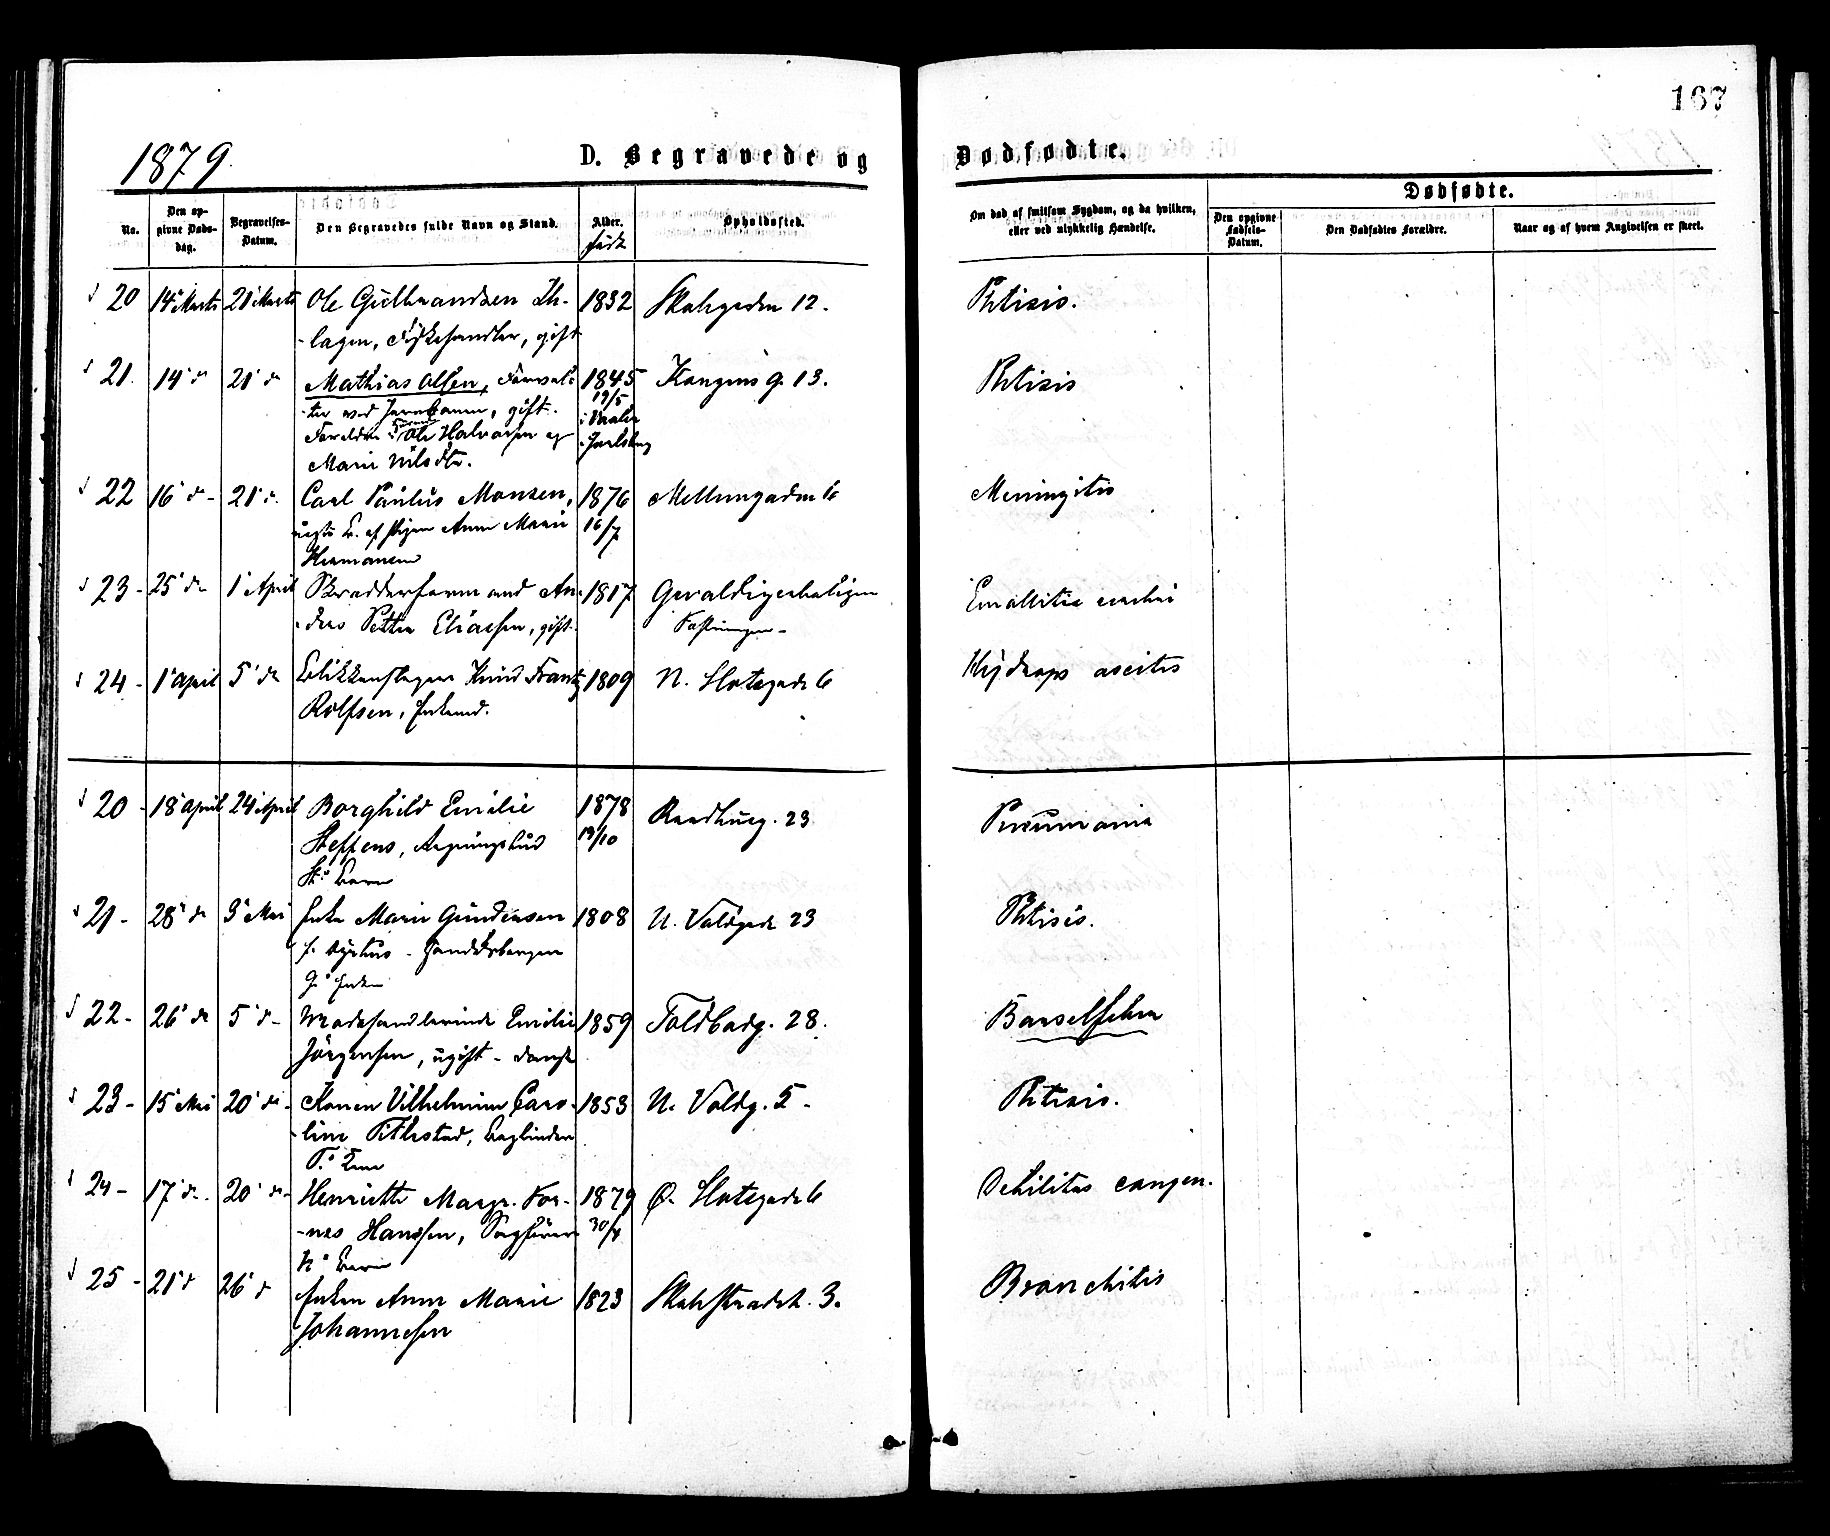 167
1879.
D. Begravede og Dødfødte.
No.
Den opgivne Dødsdag.
Begravelses-Datum.
Den Begravedes fulde Navn og Stand.
Alder.
født
Opholdssted.
Om død af smitsom Sygdom, og da hvilken, eller ved ulykkelig Hændelse.
Dødfødte.
Den opgivne Fødsels-Datum.
Den Dødfødtes Forældre.
Naar og af hvem Angivelsen er skeet.
20 14 Marts 21 Marts Ole Gulbrandsen 1832 12. Phtisis.
-lagen, Fiskehandler, gift
21. 14 d 21 d Mathias Olsen, Forval- 1845 Kongens g. 13. Phtisis
-ter ved Jernbanen, gift. 19/5
Forældre: Ole Halvorsen og i Vaale
Marie Nilsdtr. Jarlsberg
22 16 d - 21 d. Carl Paulus Monsen, 1876 Mellumgaden 6 Meningitis
uægte B. af Pigen Anne Marie 16/7
Hermansen
23 - 25 d 1 April and An- 1817
-ders Petter Eliassen, gift. Fæstningen -
24 - 1 April 5 d Blikkenslager Knud Frantz 1809 N. Slotsgade 6 Hydrops ascites
Rolfsen, Enkemd.
20 - 18 April 24 April Borghild Emilie 1878 Raadhusg. 23 Pneumonia
Steffens, Regningsbud 19/10
St.s Barn
21 - 28 d 3 Mai Enke Marie Gundersen 1808 N. Voldgade 23 Phtisis.
f.
G.s Enke
22 - 26 d 5 d - Modehandlerinde Emilie 1859 Toldbodg. 28. Barselfeber
Jörgensen, ugift - dansk
23 - 15 Mai 20 d - Konen Vilhelmine Caro- 1853 N. Voldg. 5 - Phtisis.
-line Pithstad, Bogbinder
P.s Kone
24 - 17 d - 20 d - Henriette Margr. 1879 Ø. Slotsgade 6 Debilitas congen.
-næs Hanssen, Sagförer 30/4
H.s Barn
25 - 21 d 26 d Enken Anne Marie 1823 3. Bronchitis
Johannesen